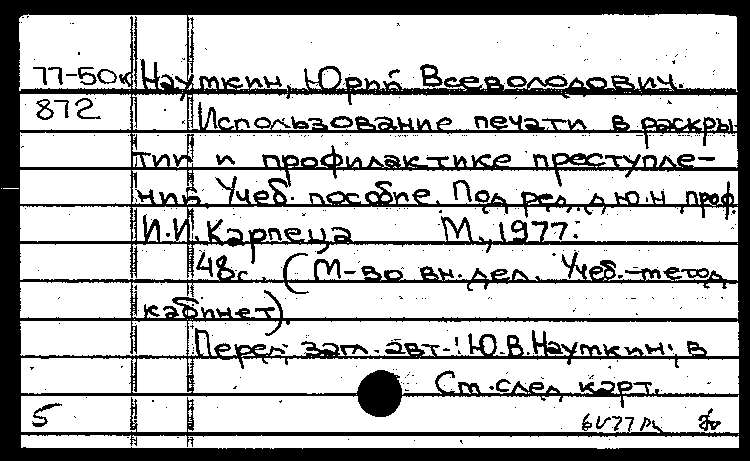 77-50к Науткин, Юрий Всеволодович.
872 Использование печати в раскры-
тии и профилактике преступле-
ний. Учеб. пособие. Под ред. д.ю.н. проф.
И.И. Карпеца М., 1977.
48с. (М-во вн. дел. Учеб.-метод.
кабинет).
Перед загл. авт.: Ю.В. Науткин, в
См. след. карт.
5